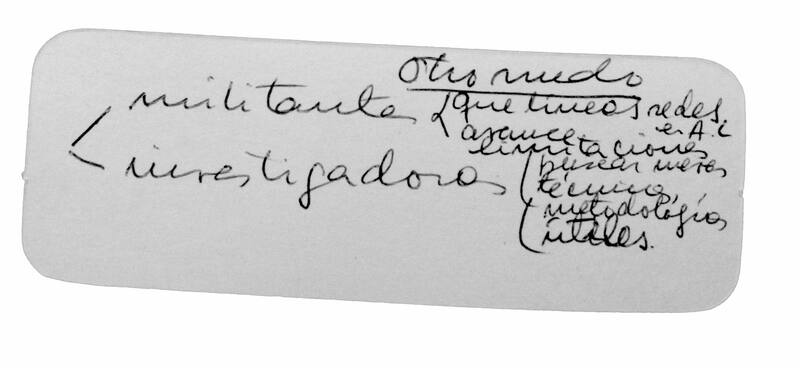 Otro nudo
militantes
que lineas redes.
avance en A.L
limitaciones
investigadoras
buscar nuevas
técnicas,
metodologías
útiles.